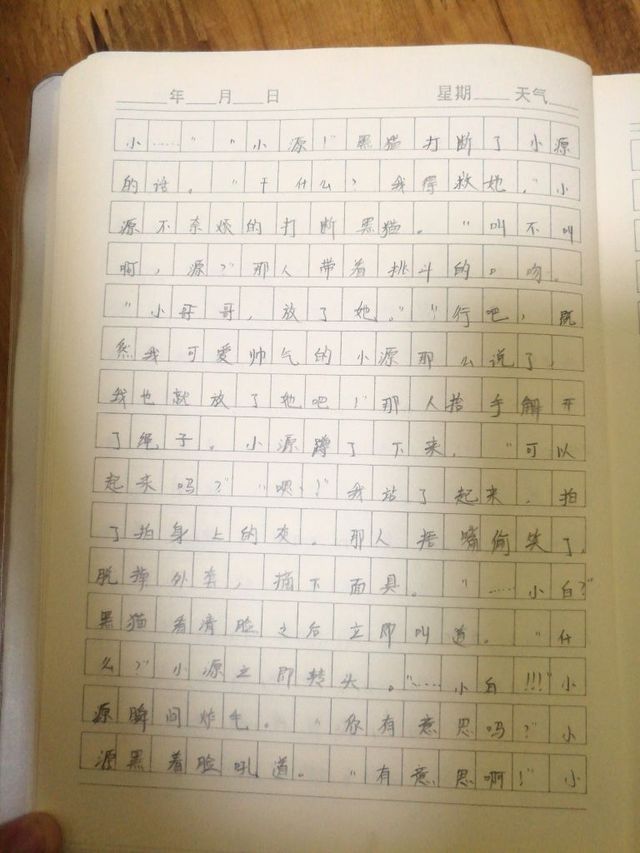 年 月 日 星期 天气
小……”“小源！”黑猫打断了小源
的话。“干什么？我得救她。”小
源不奈烦的打断黑猫。“叫不叫
啊，源？”那人带着挑斗的口吻。
“小哥哥，放了她。”“行吧，既
然我可爱帅气的小源那么说了，
我也就放了她吧！”那人抬手解开
了绳子。小源蹲了下来，“可以
起来吗？”“嗯！”我站了起来，拍
了拍身上的灰。那人捂嘴偷笑了，
脱掉外套，摘下面具。“……小白？”
黑猫看清脸之后立即叫道。“什
么？”小源立即转头。“……小白!!!”小
源瞬间炸毛。“你有意思吗？”小
源黑着脸吼道。“有意思啊！”小